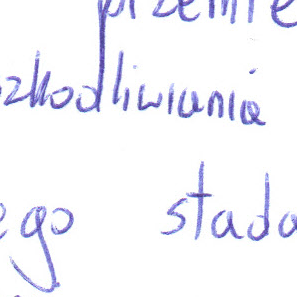 przemie
szkodliwiania
ego stada